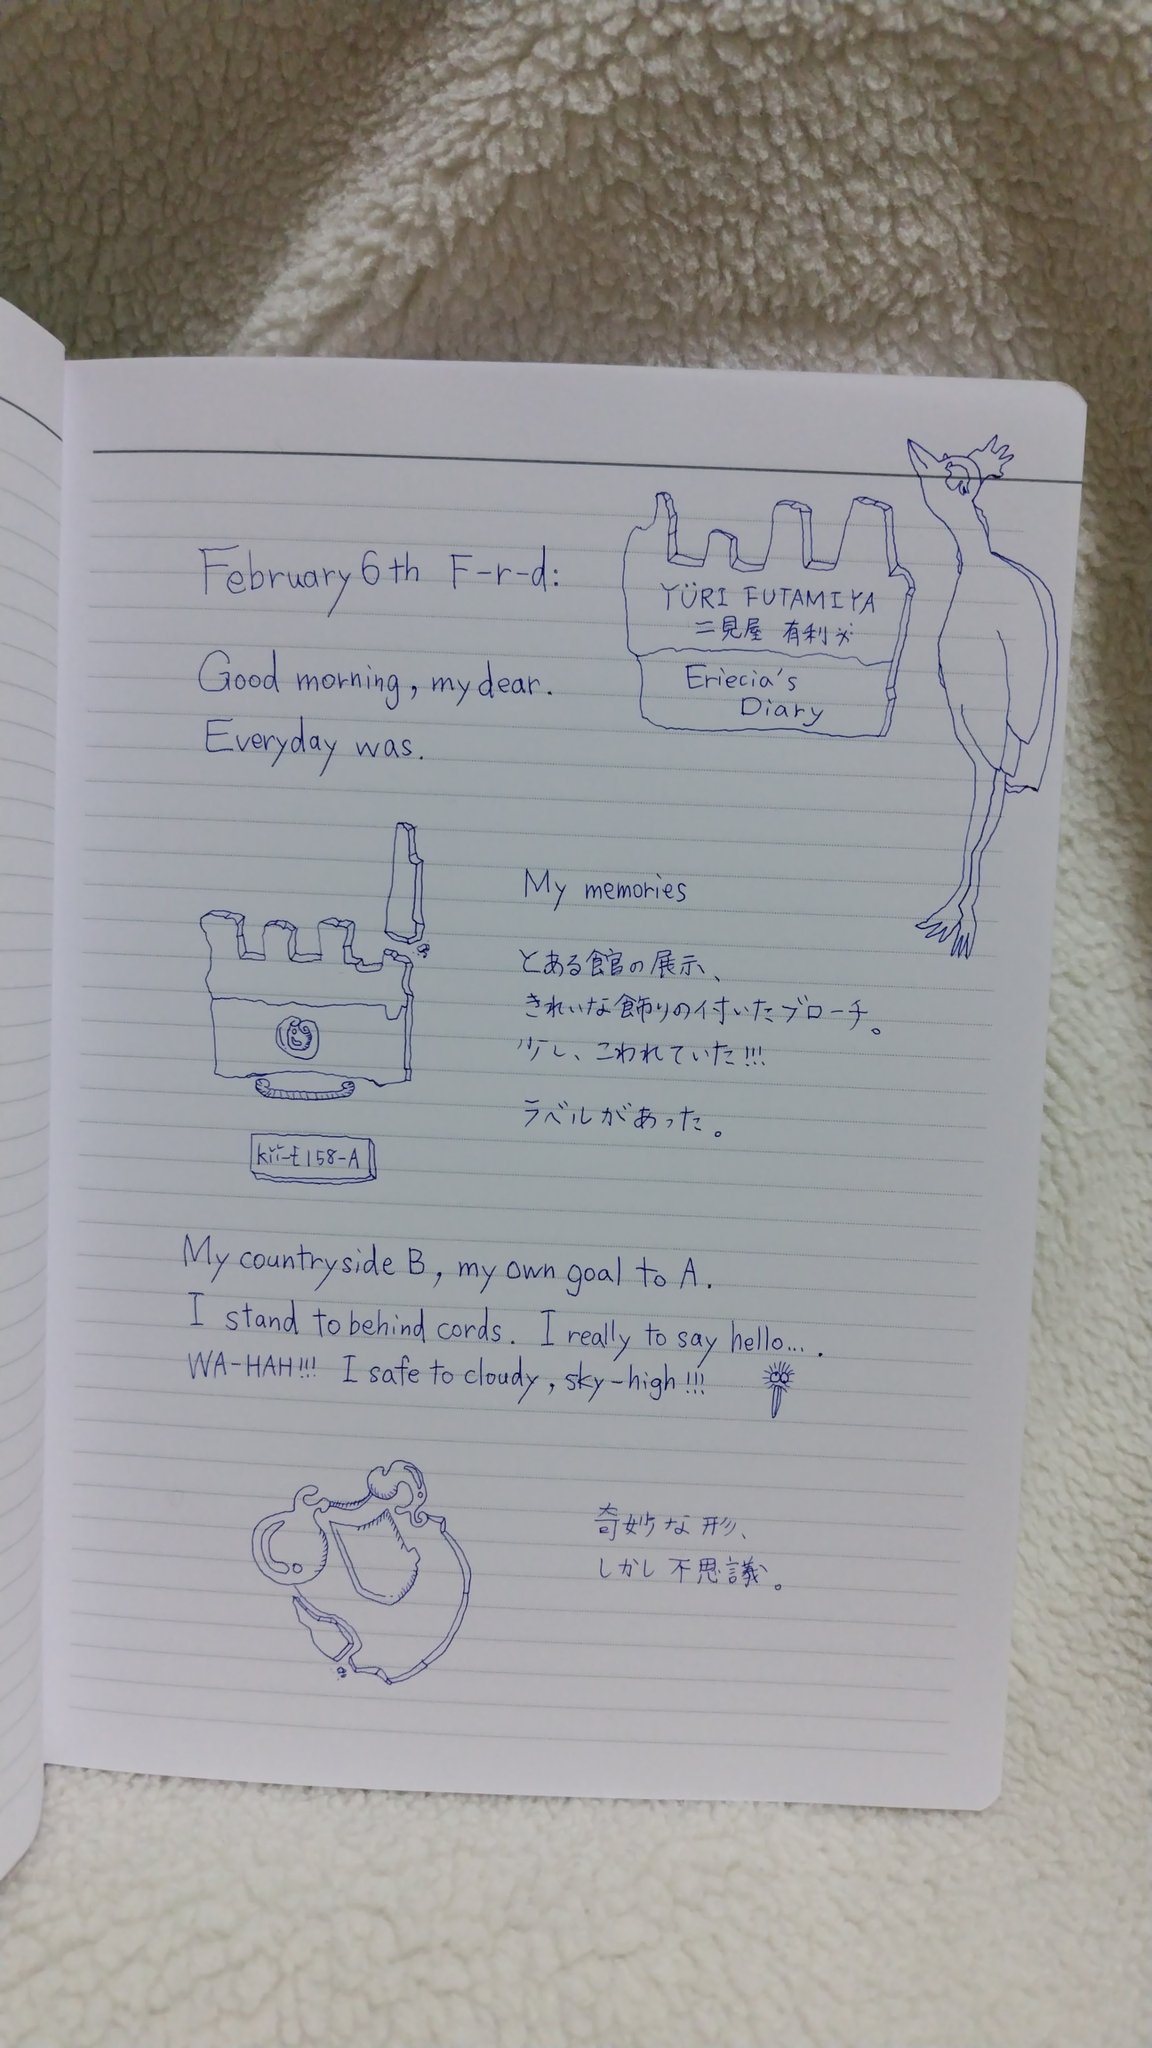 February 6th F-r-d:
YÜRI FUTAMIYA
二見屋 有利
Eriecia's
Diary
Good morning, my dear.
Everyday was.
My memories
とある館の展示、
きれいな飾りの付いたブローチ。
少し、こわれていた!!!
ラベルがあった。
158-A
My countryside B, my own goal to A.
I stand to behind cords. I really to say hello....
WA-HAH!!! I safe to cloudy, sky-high!!!
奇妙な形、
しかし不思議。